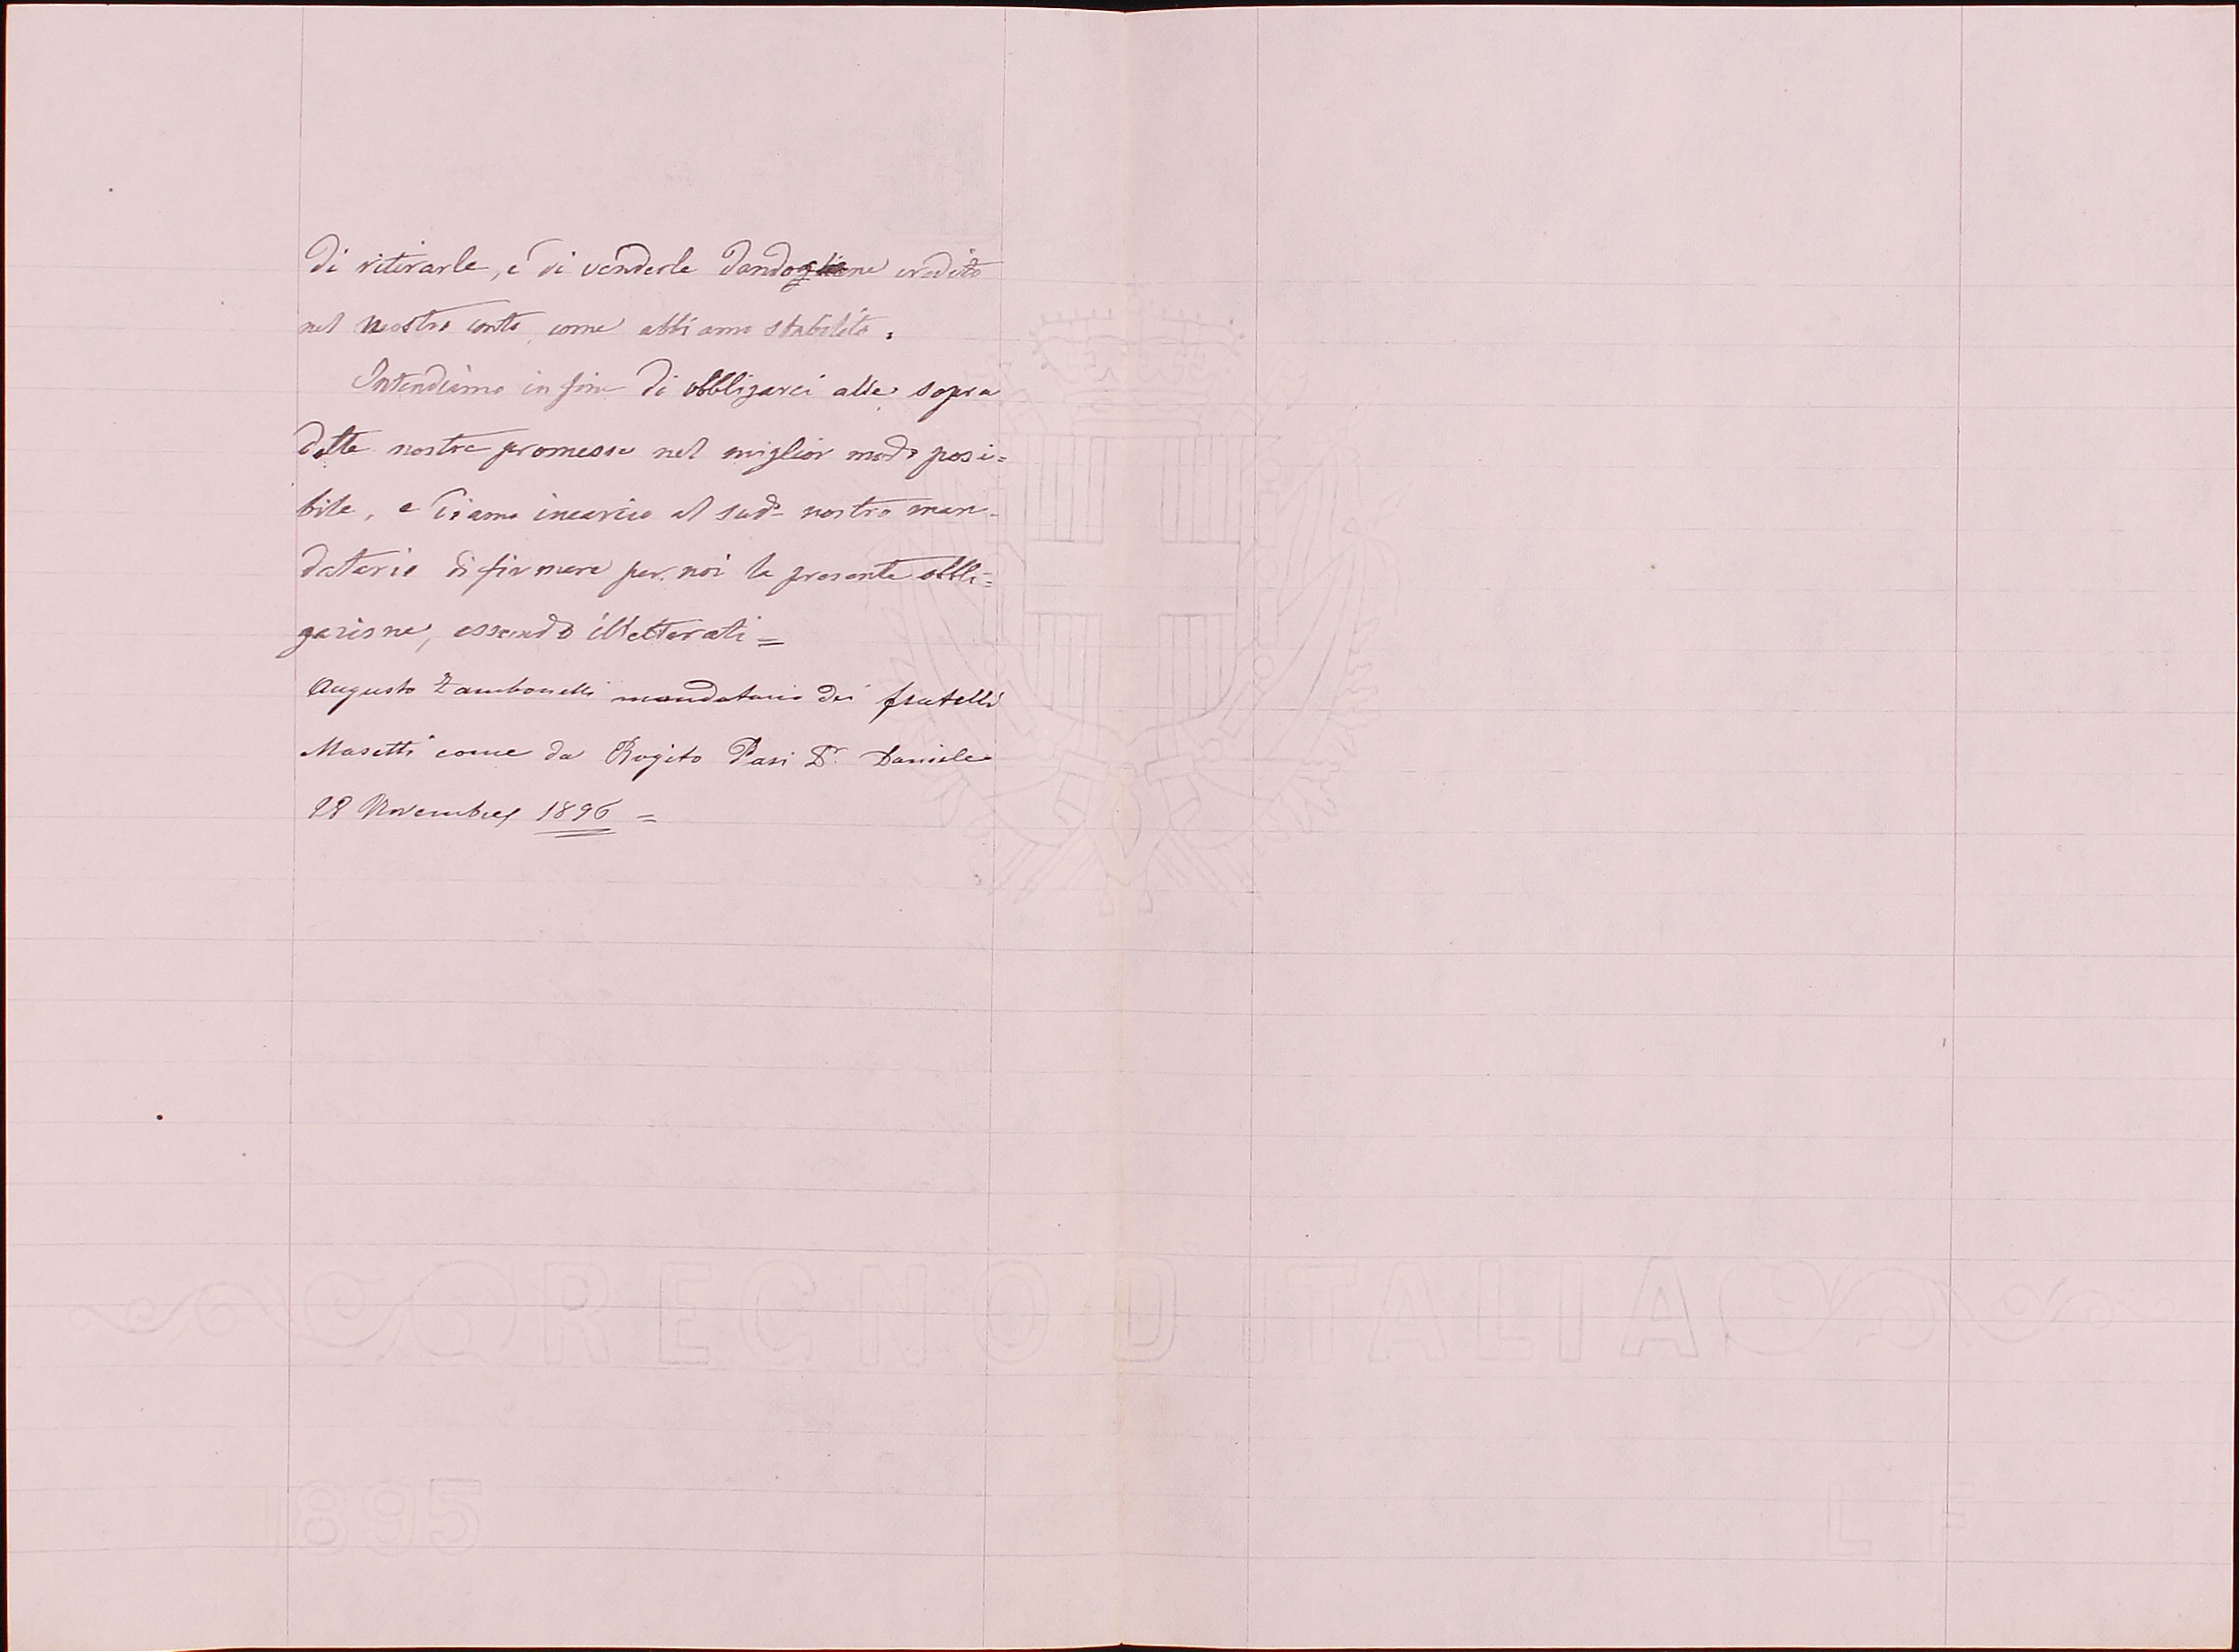 di ritirarle, e di venderle dandogliene credito
nel nostro conto, come abbiamo stabilito.
Intendiamo in fine di obbligarci alle sopra
dette nostre promesse nel miglior modo posi=
bile, e diamo incarico al sudo nostro man=
datario di firmare per noi la presente obbli=
gazione, essendo illetterati =
Augusto Zambonelli mandatario dei fratelli
Masetti come da Rogito Pasi Dr. Daniele
28 Novembre 1896 =
REGNO D ITALIA
1895
L F